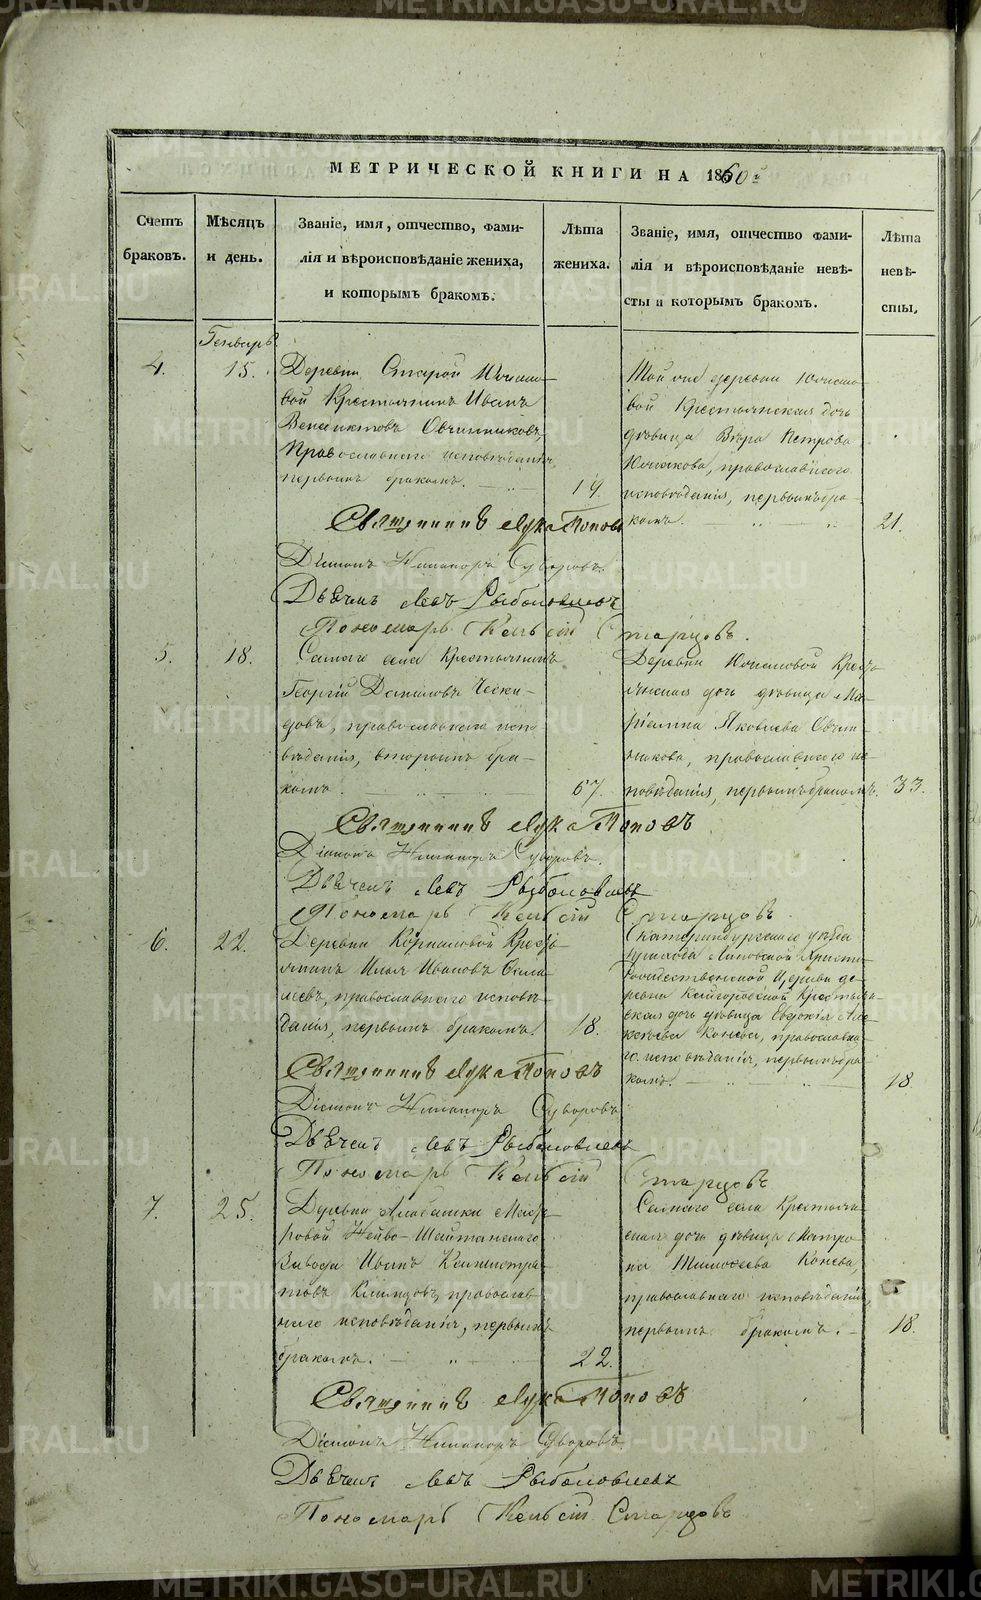 МЕТРИЧЕСКОЙ КНИГИ НА 1860й
Счетъ браковъ.
Мѣсяцъ и день.
Званіе, имя, отчество, фами-
лія и вѣроисповѣданіе жениха,
и которымъ бракомъ.
Лѣта жениха.
Званіе, имя, отчество фами-
лія и вѣроисповѣданіе невѣ-
сты и которымъ бракомъ.
Лѣта невѣ-
сты,
Генварь
4.
15.
Деревни Старой
вой Крестьянинъ Иванъ
Овчинниковъ,
Православнаго исповѣданія,
первымъ бракомъ.
19.
Той же деревни
вой Крестьянская дочь
дѣвица Вѣра Петрова
православнаго
исповѣданія, первымъ бра-
комъ.
21.
Священникъ Лука Поповъ
Діаконъ Никаноръ Суворовъ.
Дьячекъ Левъ Рыболовлевъ
Пономарь Старцовъ.
5.
18.
Самаго села Крестьянинъ
Георгій Даниловъ Чески-
довъ, православнаго испо-
вѣданія, вторымъ бра-
комъ.
67.
Деревни Кресть-
янская дочь дѣвица Ма-
Яковлева Овчин-
никова, православнаго ис-
повѣданія, первымъ бракомъ.
33.
Священникъ Лука Поповъ
Діаконъ Никаноръ Суворовъ.
Дьячекъ Левъ Рыболовлевъ
Пономарь Старцовъ
6.
22.
Деревни Корниловой Кресть-
янинъ Илья Ивановъ
православнаго исповѣ-
данія, первымъ бракомъ.
18.
Екатеринбургскаго уѣзда
прихода Липовской Христо-
рождественской Церкви де-
ревни Кайгородской Крестьян-
ская дочь дѣвица Евдокія Але-
ксѣева Конева, православна-
го исповѣданія, первымъ бра-
комъ.
18.
Священникъ Лука Поповъ
Діаконъ Никаноръ Суворовъ
Дьячекъ Левъ Рыболовлевъ
Пономарь Старцовъ
7.
25.
Деревни Алабашки
Нейво-Шайтанскаго
Завода Иванъ Калистра-
товъ православ-
наго исповѣданія, первымъ
бракомъ.
22.
Самаго села Крестьян-
ская дочь дѣвица Матро-
на Тимофеева Конева,
православнаго исповѣданія,
первымъ бракомъ.
18.
Священникъ Лука Поповъ
Діаконъ Никаноръ Суворовъ.
Дьячекъ Левъ Рыболовлевъ
Пономарь Старцовъ
METRIKI.GASO-URAL.RU